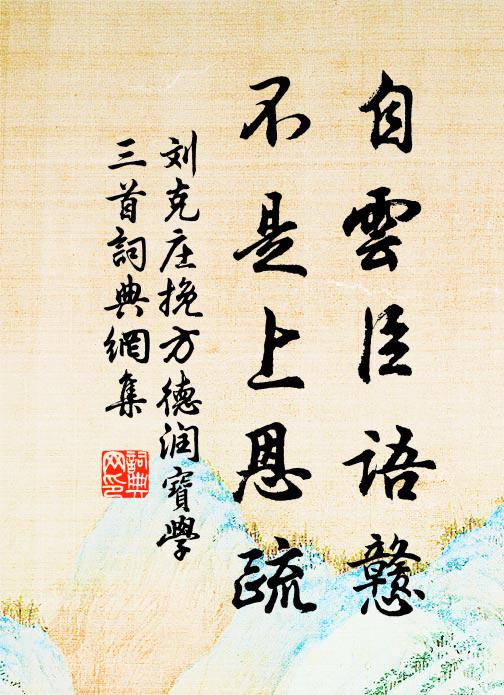 自雲臣語戇
不是上恩疏
刘克庄挽方德润寶學
三首詞典網集
詞典
网